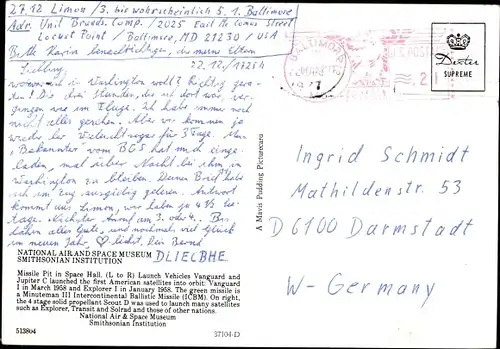 27.12 Limon /3. bis wahrscheinlich 5.1. Baltimore
Adr. Unit Brands. Comp. / 2025 East McComas Street
Locust Point / Baltimore, MD 21230 / USA
Bitte Karin benachrichtigen, die meine Eltern
Liebling 22.12./1725h
war es in Washington toll? Richtig
Die drei Stunden, die ich dort war ver-
gingen wie im Fluge. Ich habe immer noch
nicht alles gesehen. Aber wir kommen ja
wieder her für 3 Tage. Mein
"Bekannter vom BGS" hat mich einge-
laden, mal über Nacht bei ihm in
Washington zu bleiben. Deinen Brief habe
ich im Zug ausgiebig gelesen. Antwort
kommt aus Limon, wir haben ja 4 1/2 See-
tage. Nächster Anruf am 3. oder 4.. Bis
dahin alles Gute, und nochmal viel Glück
im neuen Jahr, ♡ lichst, Dein Bernd
DLIELBHE
NATIONAL AIR AND SPACE MUSEUM
SMITHSONIAN INSTITUTION
Missile Pit in Space Hall. (L to R) Launch Vehicles Vanguard and
Jupiter C launched the first American satellites into orbit: Vanguard
I in March 1958 and Explorer I in January 1958. The green missile is
a Minuteman III Intercontinental Ballistic Missile (ICBM). On right,
the 4 stage solid propellant Scout D was used to launch many satellites
such as Explorer, Transit and Solrad and those of other nations.
National Air & Space Museum
Smithsonian Institution
513804
37104-D
A Mavis Pudding Picturecard
BALTIMORE
1977
U.S. POST
.21
Dexter
SUPREME
Ingrid Schmidt
Mathildenstr. 53
D6100 Darmstadt
W-Germany